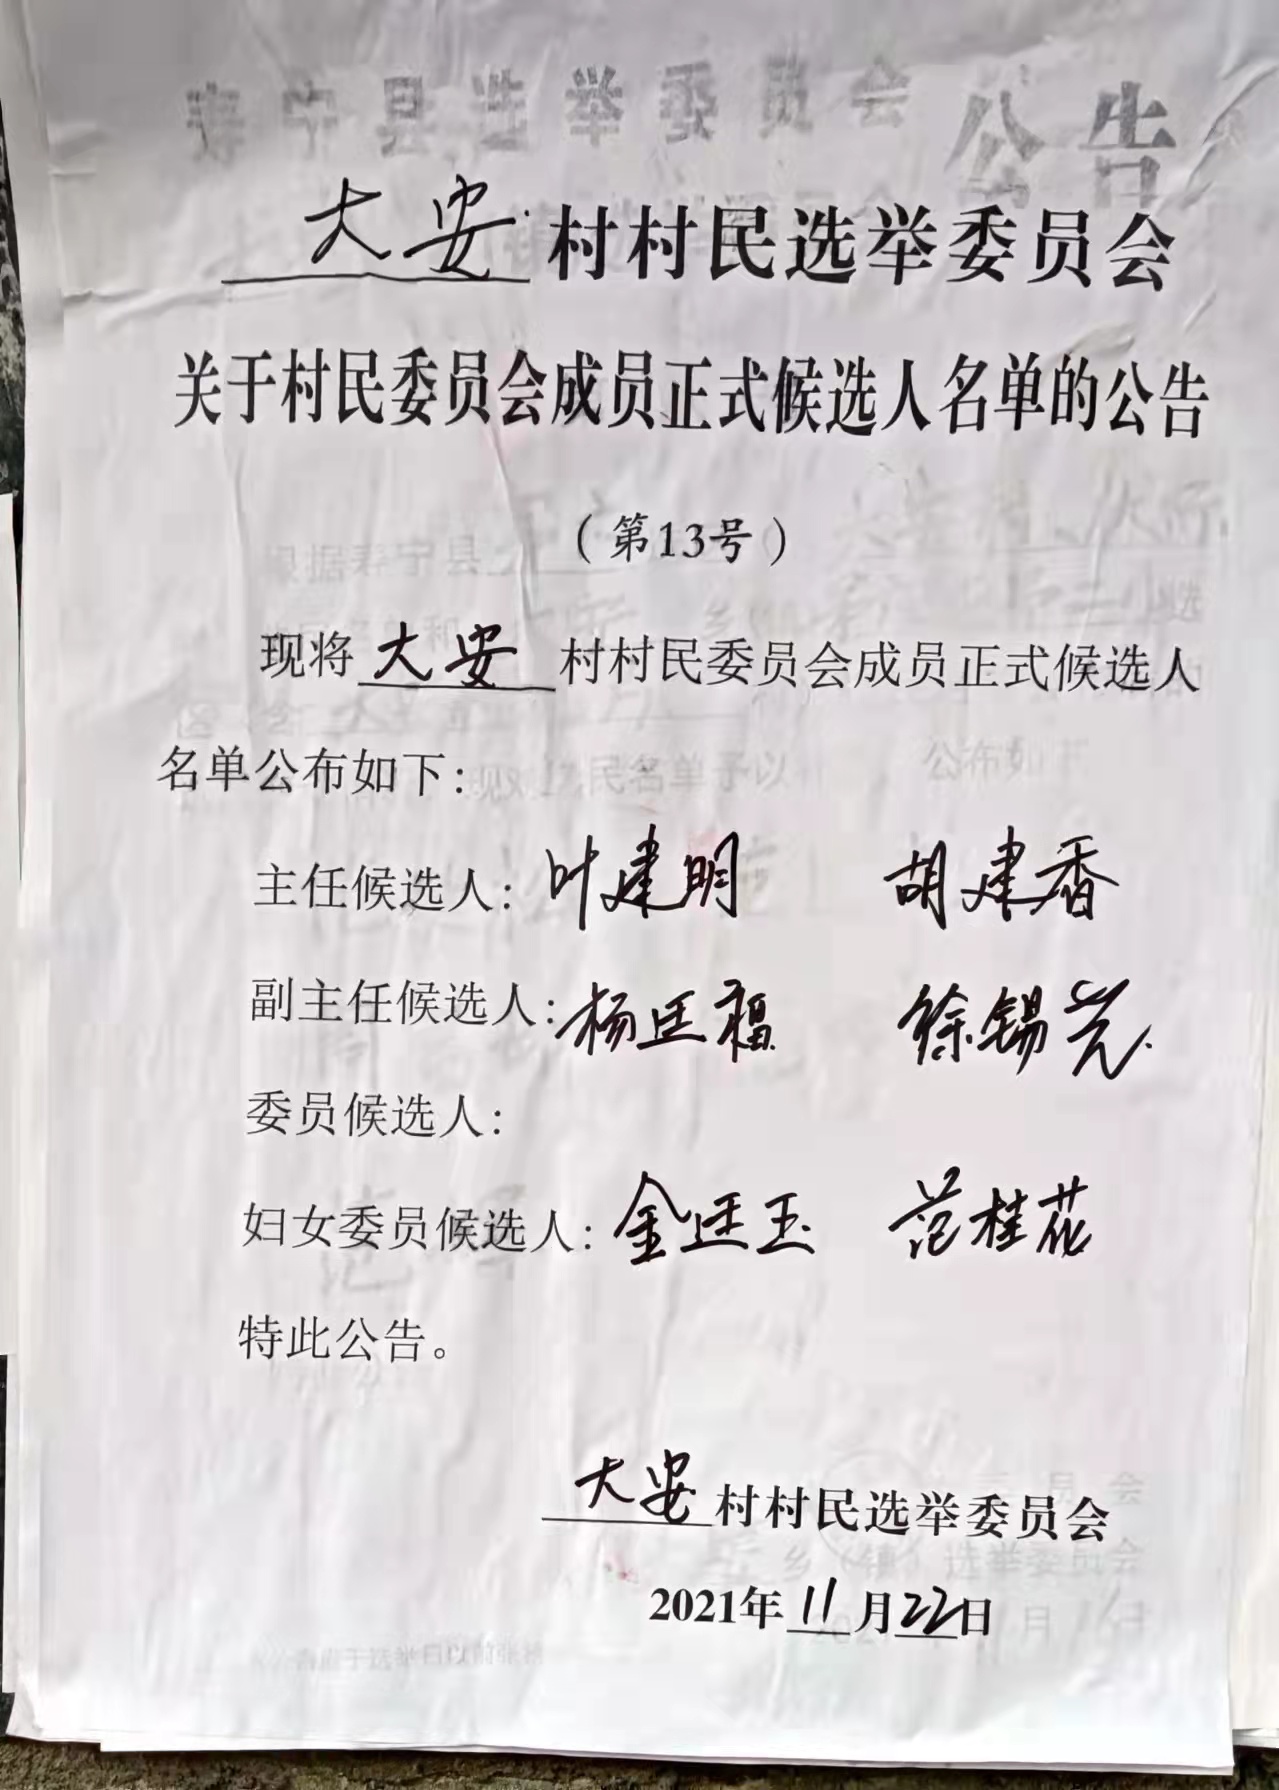 寿宁县选举委员会公告
大安村村民选举委员会
关于村民委员会成员正式候选人名单的公告
（第13号）
现将大安村村民委员会成员正式候选人
名单公布如下：
主任候选人：叶建明 胡建香
副主任候选人：杨匡福 徐锡芫
委员候选人：
妇女委员候选人：金廷玉 范桂花
特此公告。
大安村村民选举委员会
2021年11月22日